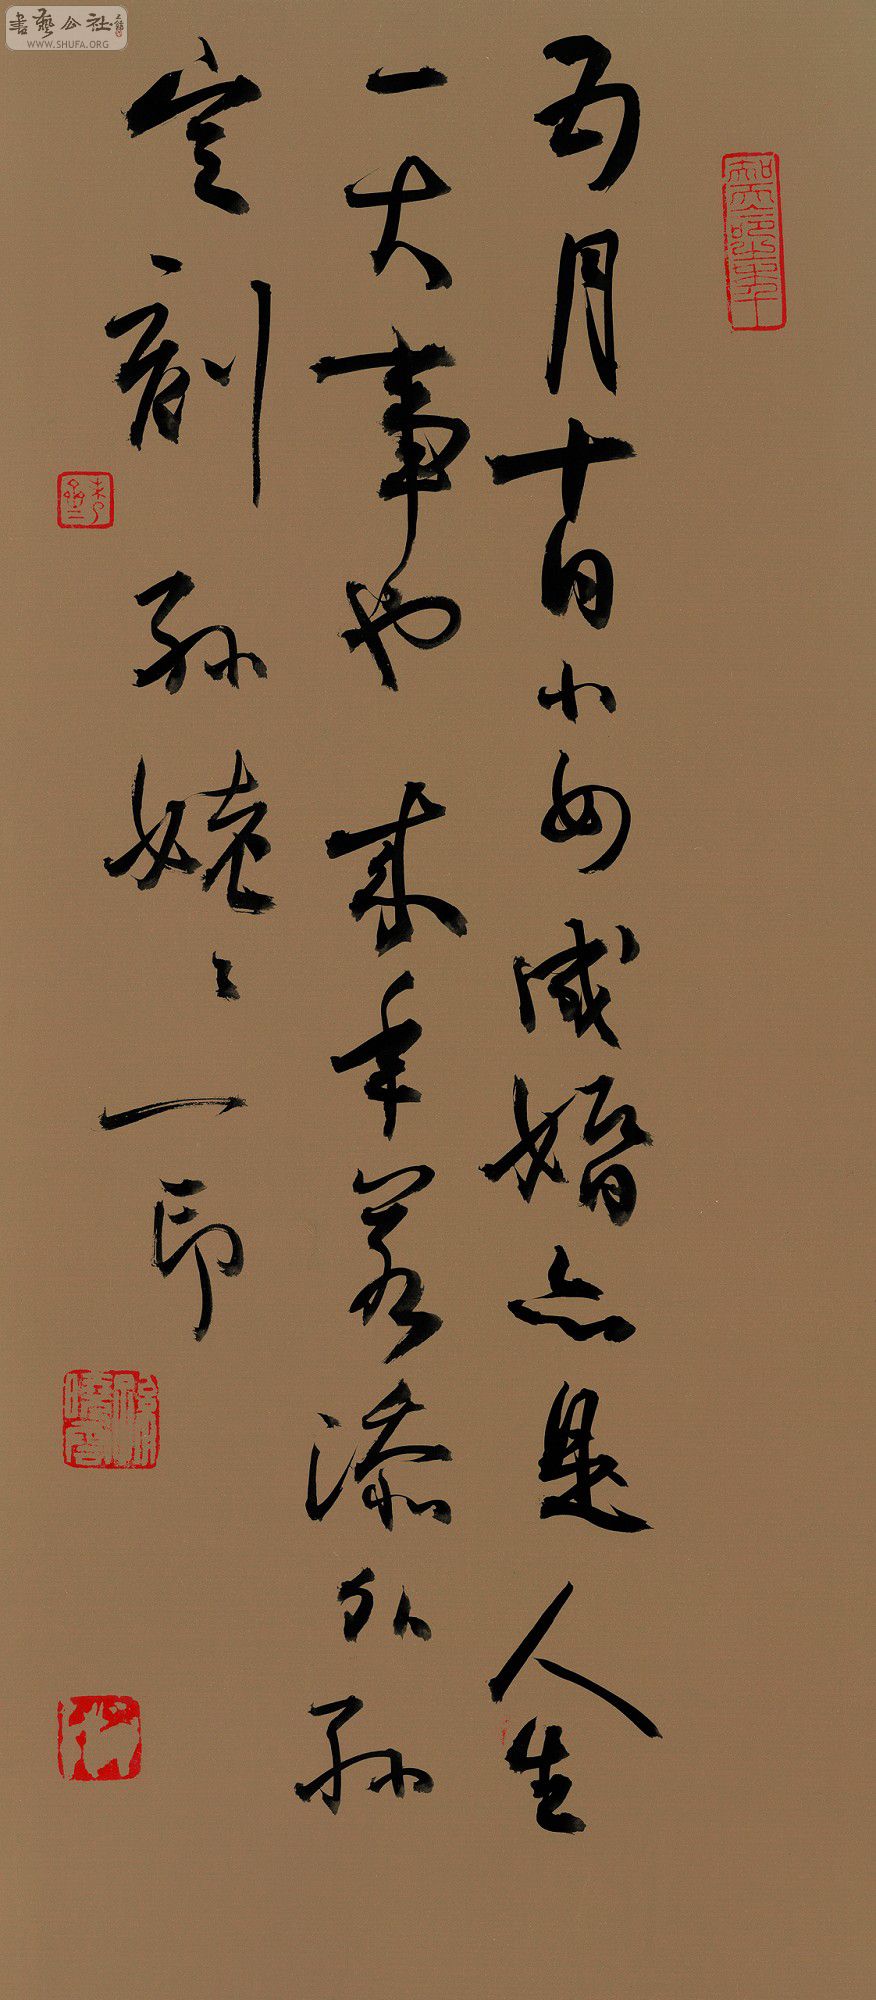 五月十日小女成婚亦是人生
一大事也来年若添外孙
定刻孙姥〻一印
書藝公社
WWW.SHUFA.ORG